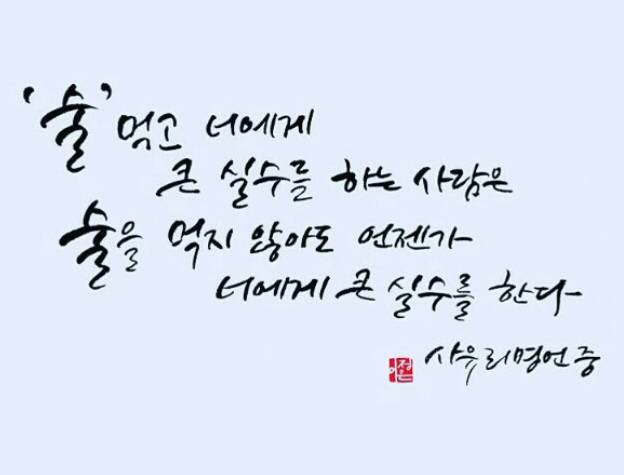 '술' 먹고 너에게
큰 실수를 하는 사람은
술을 먹지 않아도 언젠가
너에게 큰 실수를 한다
사유리명언중